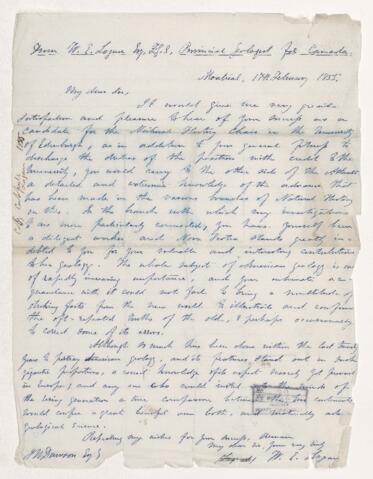 From W. E. Logan Esq, F.G.S., Provincial Geologist for Canada.
Montreal, 17th February, 1855.
My dear Sir,
It would give me very great
satisfaction and pleasure to hear of your success as a
candidate for the Natural History Chair in the University
of Edinburgh, as in addition to your general fitness to
discharge the duties of the position with credit to the
University, you would carry to the other side of the Atlantic
a detailed and extensive knowledge of the advance that
has been made in the various branches of Natural History
on this. In the branch with which my investigations
are more particularly connected, you have yourself been
a diligent worker and Nova Scotia stands greatly in-
debted to you for your valuable and interesting contributions
to her geology. The whole subject of American Geology is one
of rapidly increasing importance, and your intimate ac-
quaintance with it could not fail to bring a multitude of
striking facts from the new world to illustrate and confirm
the oft-repeated truths of the old, & perhaps occasionally
to correct some of its errors.
Although so much has been done within the last twenty
years to American geology, and its features stand out in such
gigantic proportions, a correct knowledge of its aspect scarcely yet
in Europe; and any one who could the minds of
the rising generation a true comparison between the two continents
would confer a great benefit on both, and materially aid
geological science.
Repeating my wishes for your success, I remain
My dear Sir, Yours very truly
W. E. Logan
J W Dawson Esq